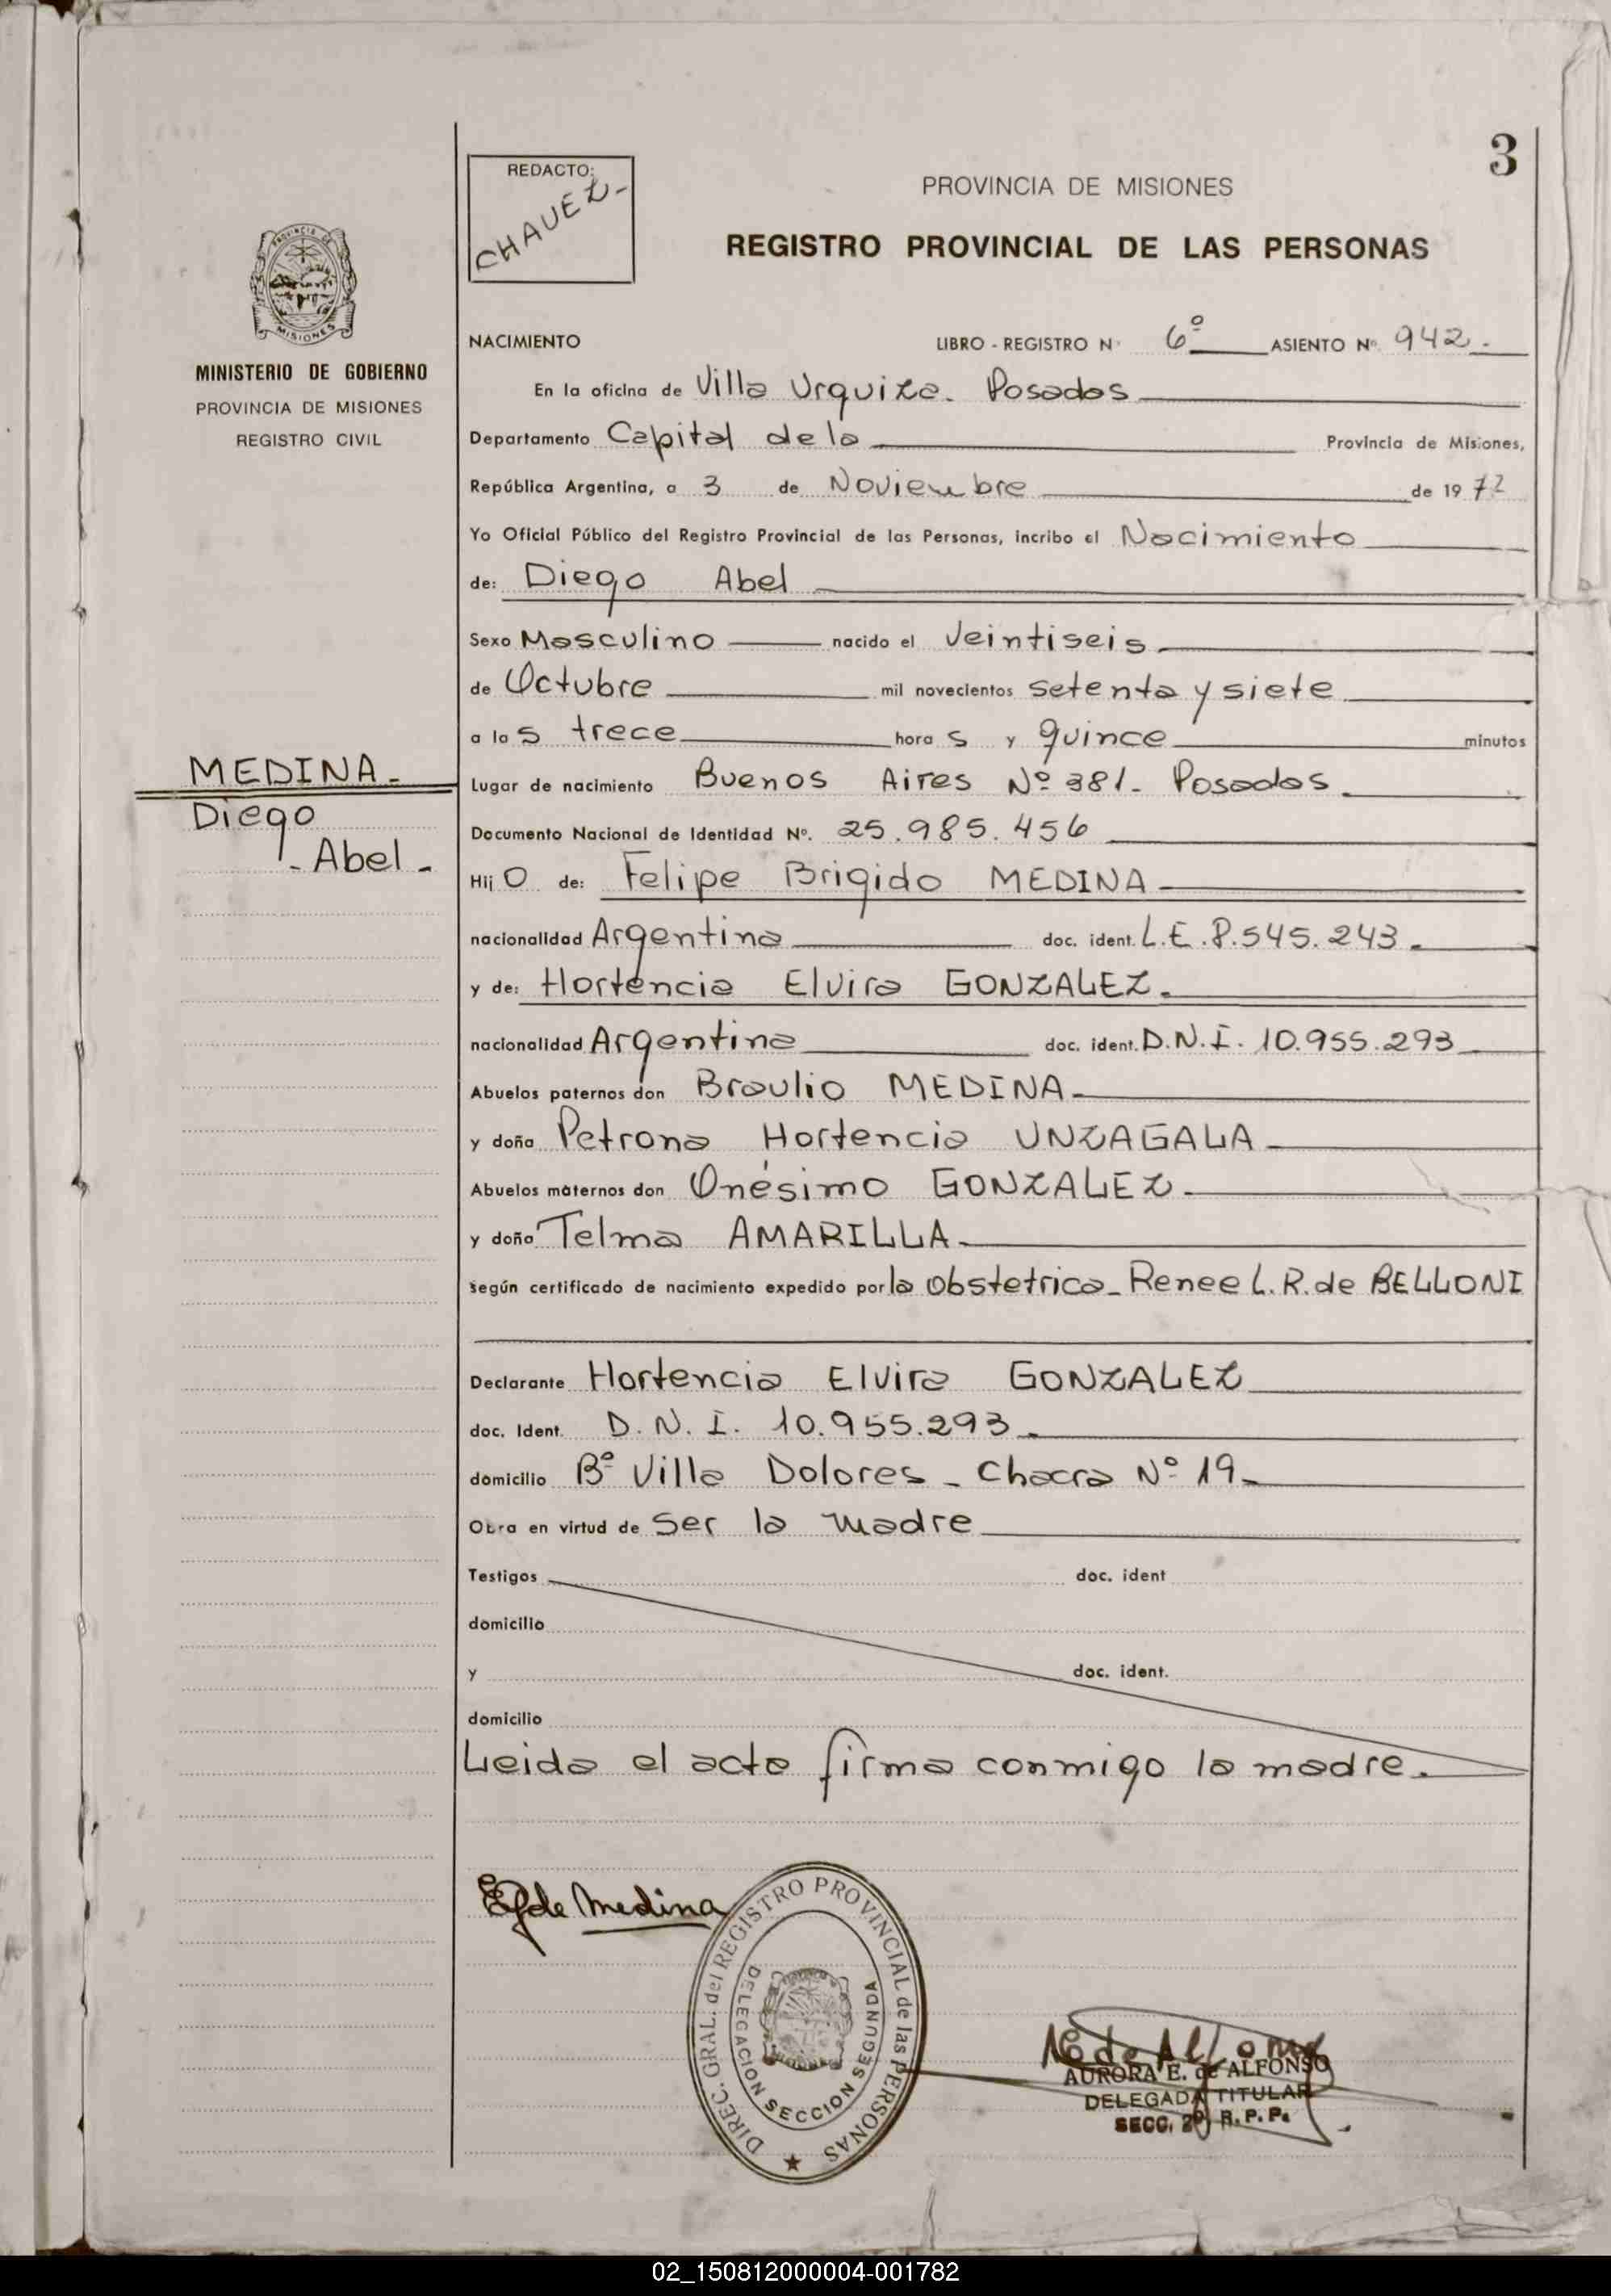 3
REDACTO:
CHAVEZ-
PROVINCIA DE MISIONES
REGISTRO PROVINCIAL DE LAS PERSONAS
MINISTERIO DE GOBIERNO
PROVINCIA DE MISIONES
REGISTRO CIVIL
NACIMIENTO LIBRO - REGISTRO Nº 6º ASIENTO Nº 942.-
En la oficina de Villa Urquiza. Posadas
Departamento Capital de la Provincia de Misiones,
República Argentina, a 3 de Noviembre de 19 77
Yo Oficial Público del Registro Provincial de las Personas, incribo el Nacimiento
de: Diego Abel
Sexo Masculino nacido el Veintiseis
de Octubre mil novecientos setenta y siete
a las trece horas y quince minutos
MEDINA-
Diego
- Abel -
Lugar de nacimiento Buenos Aires Nº 381- Posadas.
Documento Nacional de Identidad Nº. 25.985.456
Hijo de: Felipe Brigido MEDINA
nacionalidad Argentina doc. ident. L.E. 8.545.243
y de: Hortencia Elvira GONZALEZ.
nacionalidad Argentina doc. ident. D.N.I. 10.955.293
Abuelos paternos don Braulio MEDINA
y doña Petrona Hortencia UNZAGALA
Abuelos maternos don Onésimo GONZALEZ
y doña Telma AMARILLA
según certificado de nacimiento expedido por la Obstetrica- Renee L. R. de BELLONI
Declarante Hortencia Elvira GONZALEZ
doc. Ident. D.N.I. 10.955.293
domicilio Bº Villa Dolores - Chacra Nº 19
Obra en virtud de ser la madre
Testigos doc. ident
domicilio
y doc. ident.
domicilio
Leida el acta firma conmigo la madre.
de Medina
DIREC. GRAL. del REGISTRO PROVINCIAL de las PERSONAS
DELEGACION SECCION SEGUNDA
AEde Alfonso
AURORA E. de ALFONSO
DELEGADA TITULAR
SECC. 2º R. P. P.
02_150812000004-001782